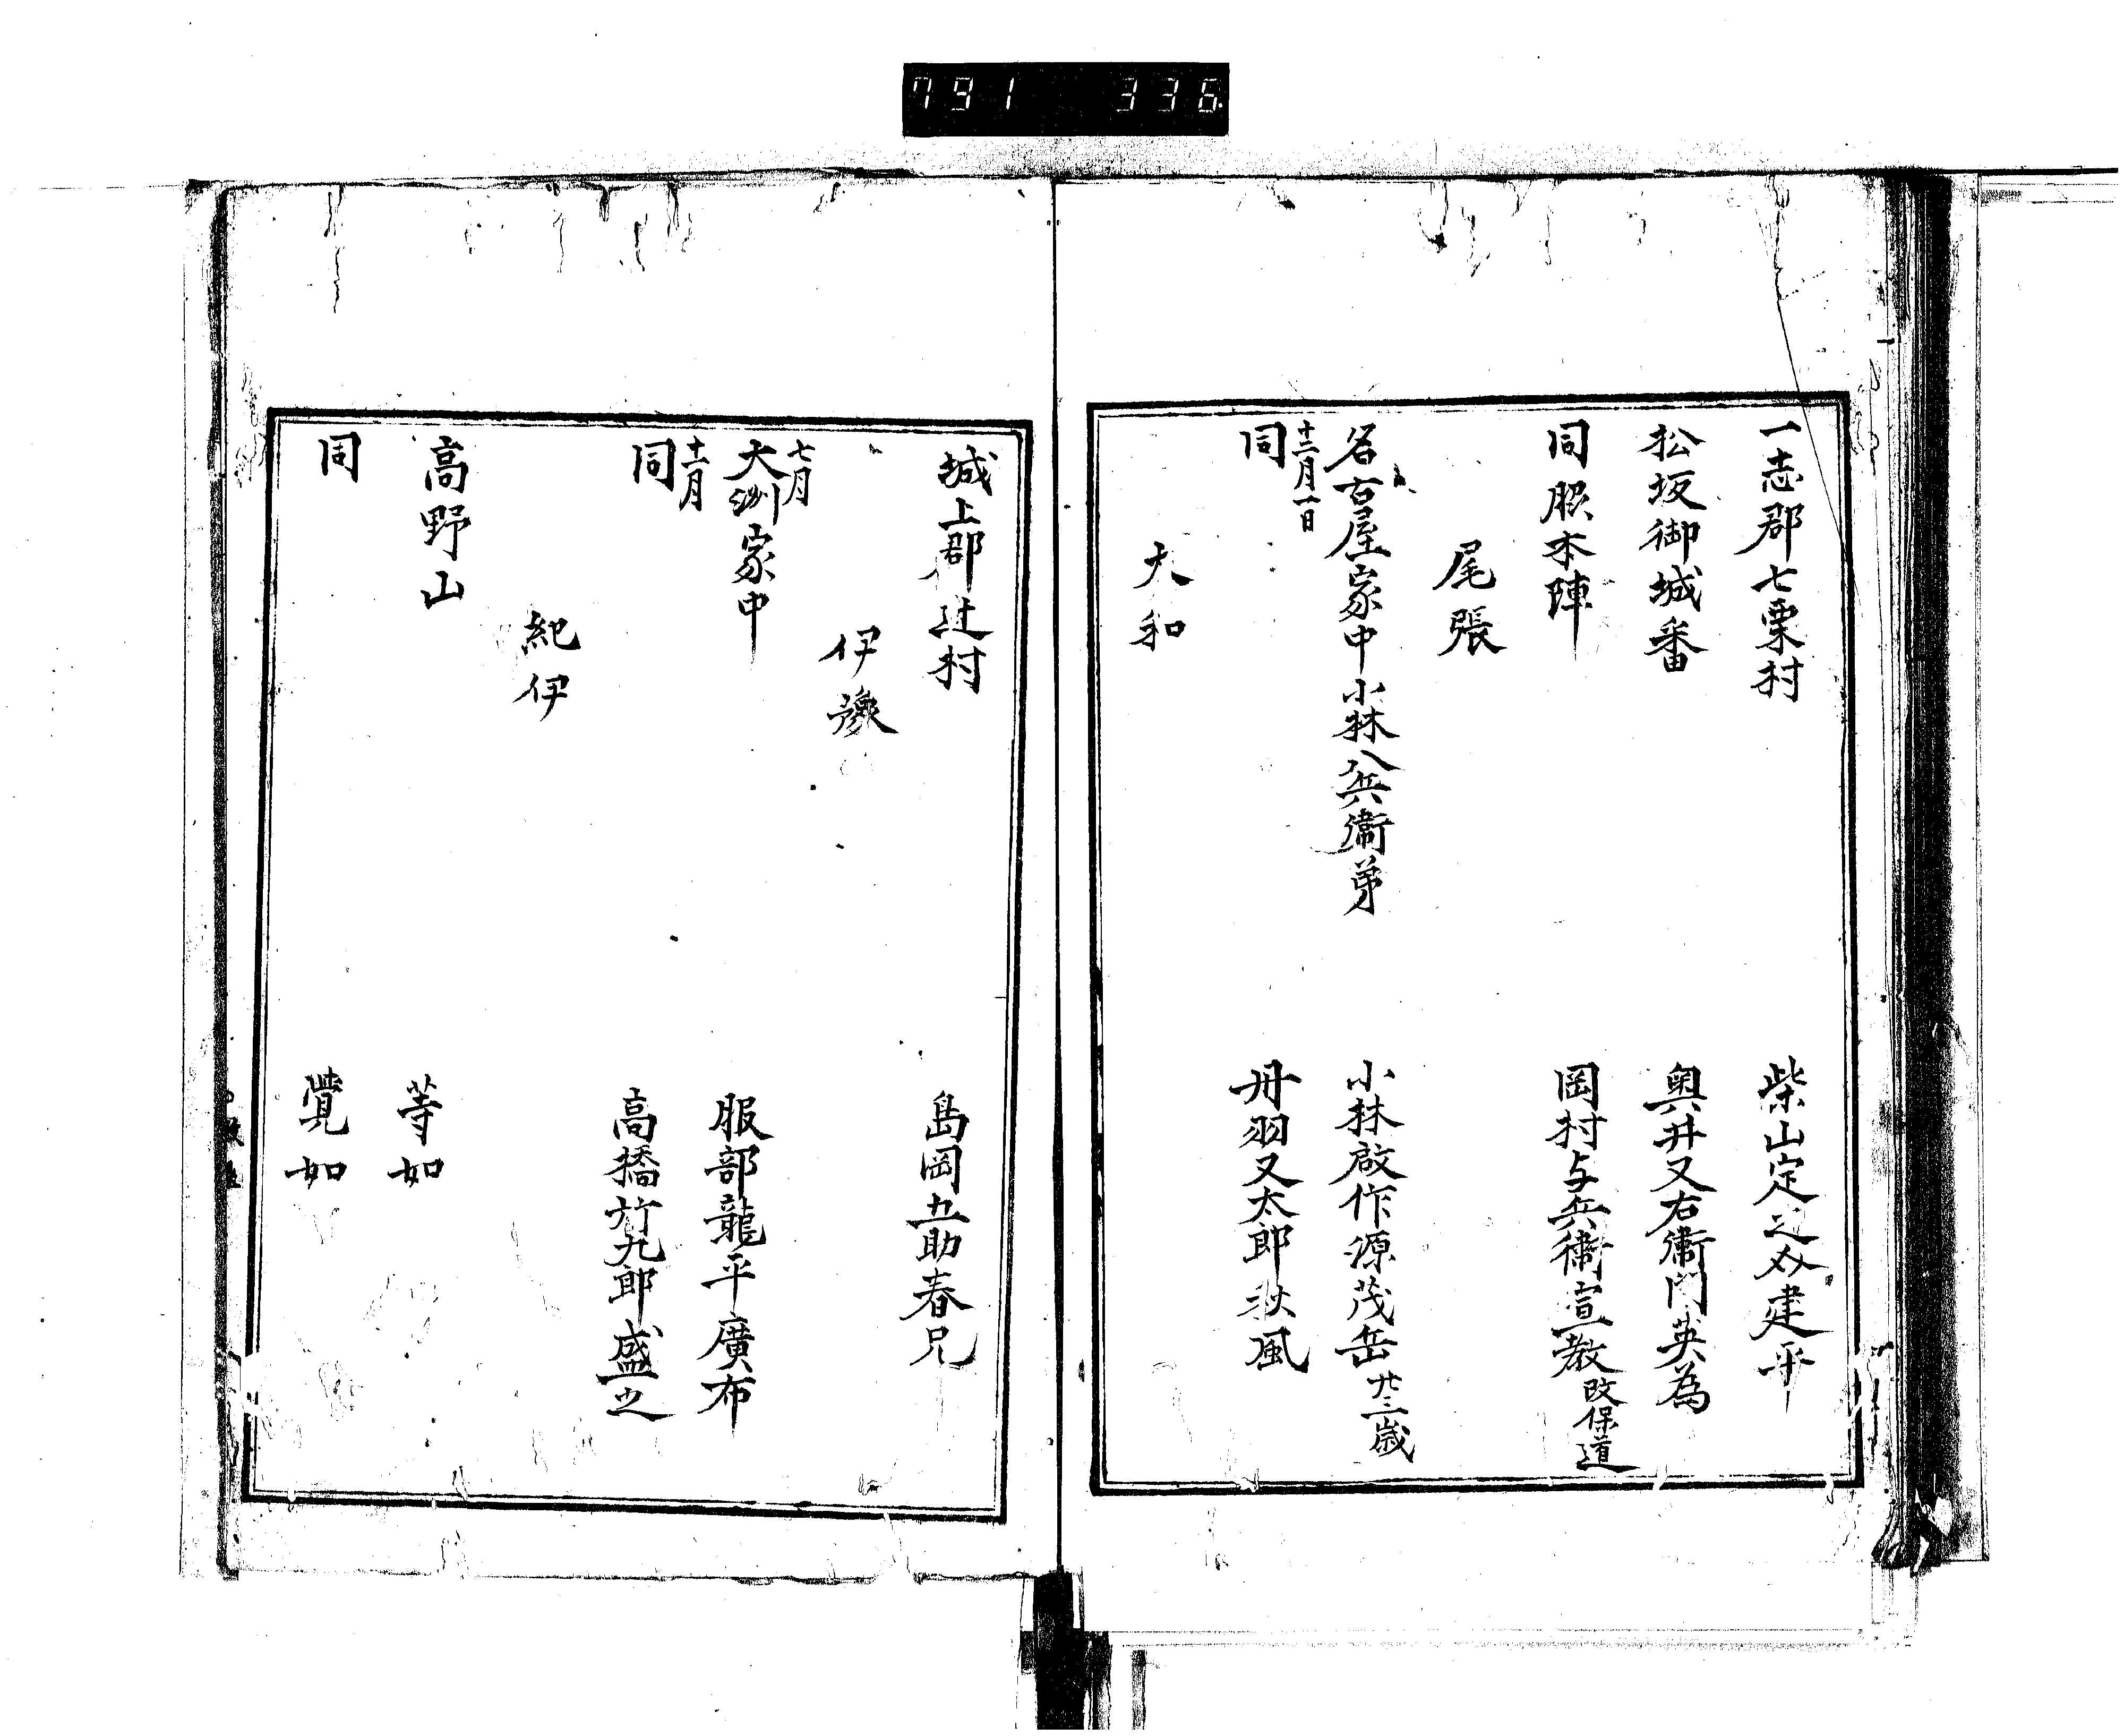 791 336
一志郡七栗村 柴山定之丞建平
松坂御城番 奥井又右衛門英為
同脇本陣 岡村与兵衛宣教 改保道
尾張
名古屋家中小林八兵衛弟 小林啟作源茂岳 廿三歳
十二月一日
同 丹羽又太郎秋風
大和
城上郡辻村 島岡五助春兄
伊豫
七月
大洲家中 服部龍平廣布
十一月
同 高橋竹九郎盛之
紀伊
高野山 等如
同 覺如